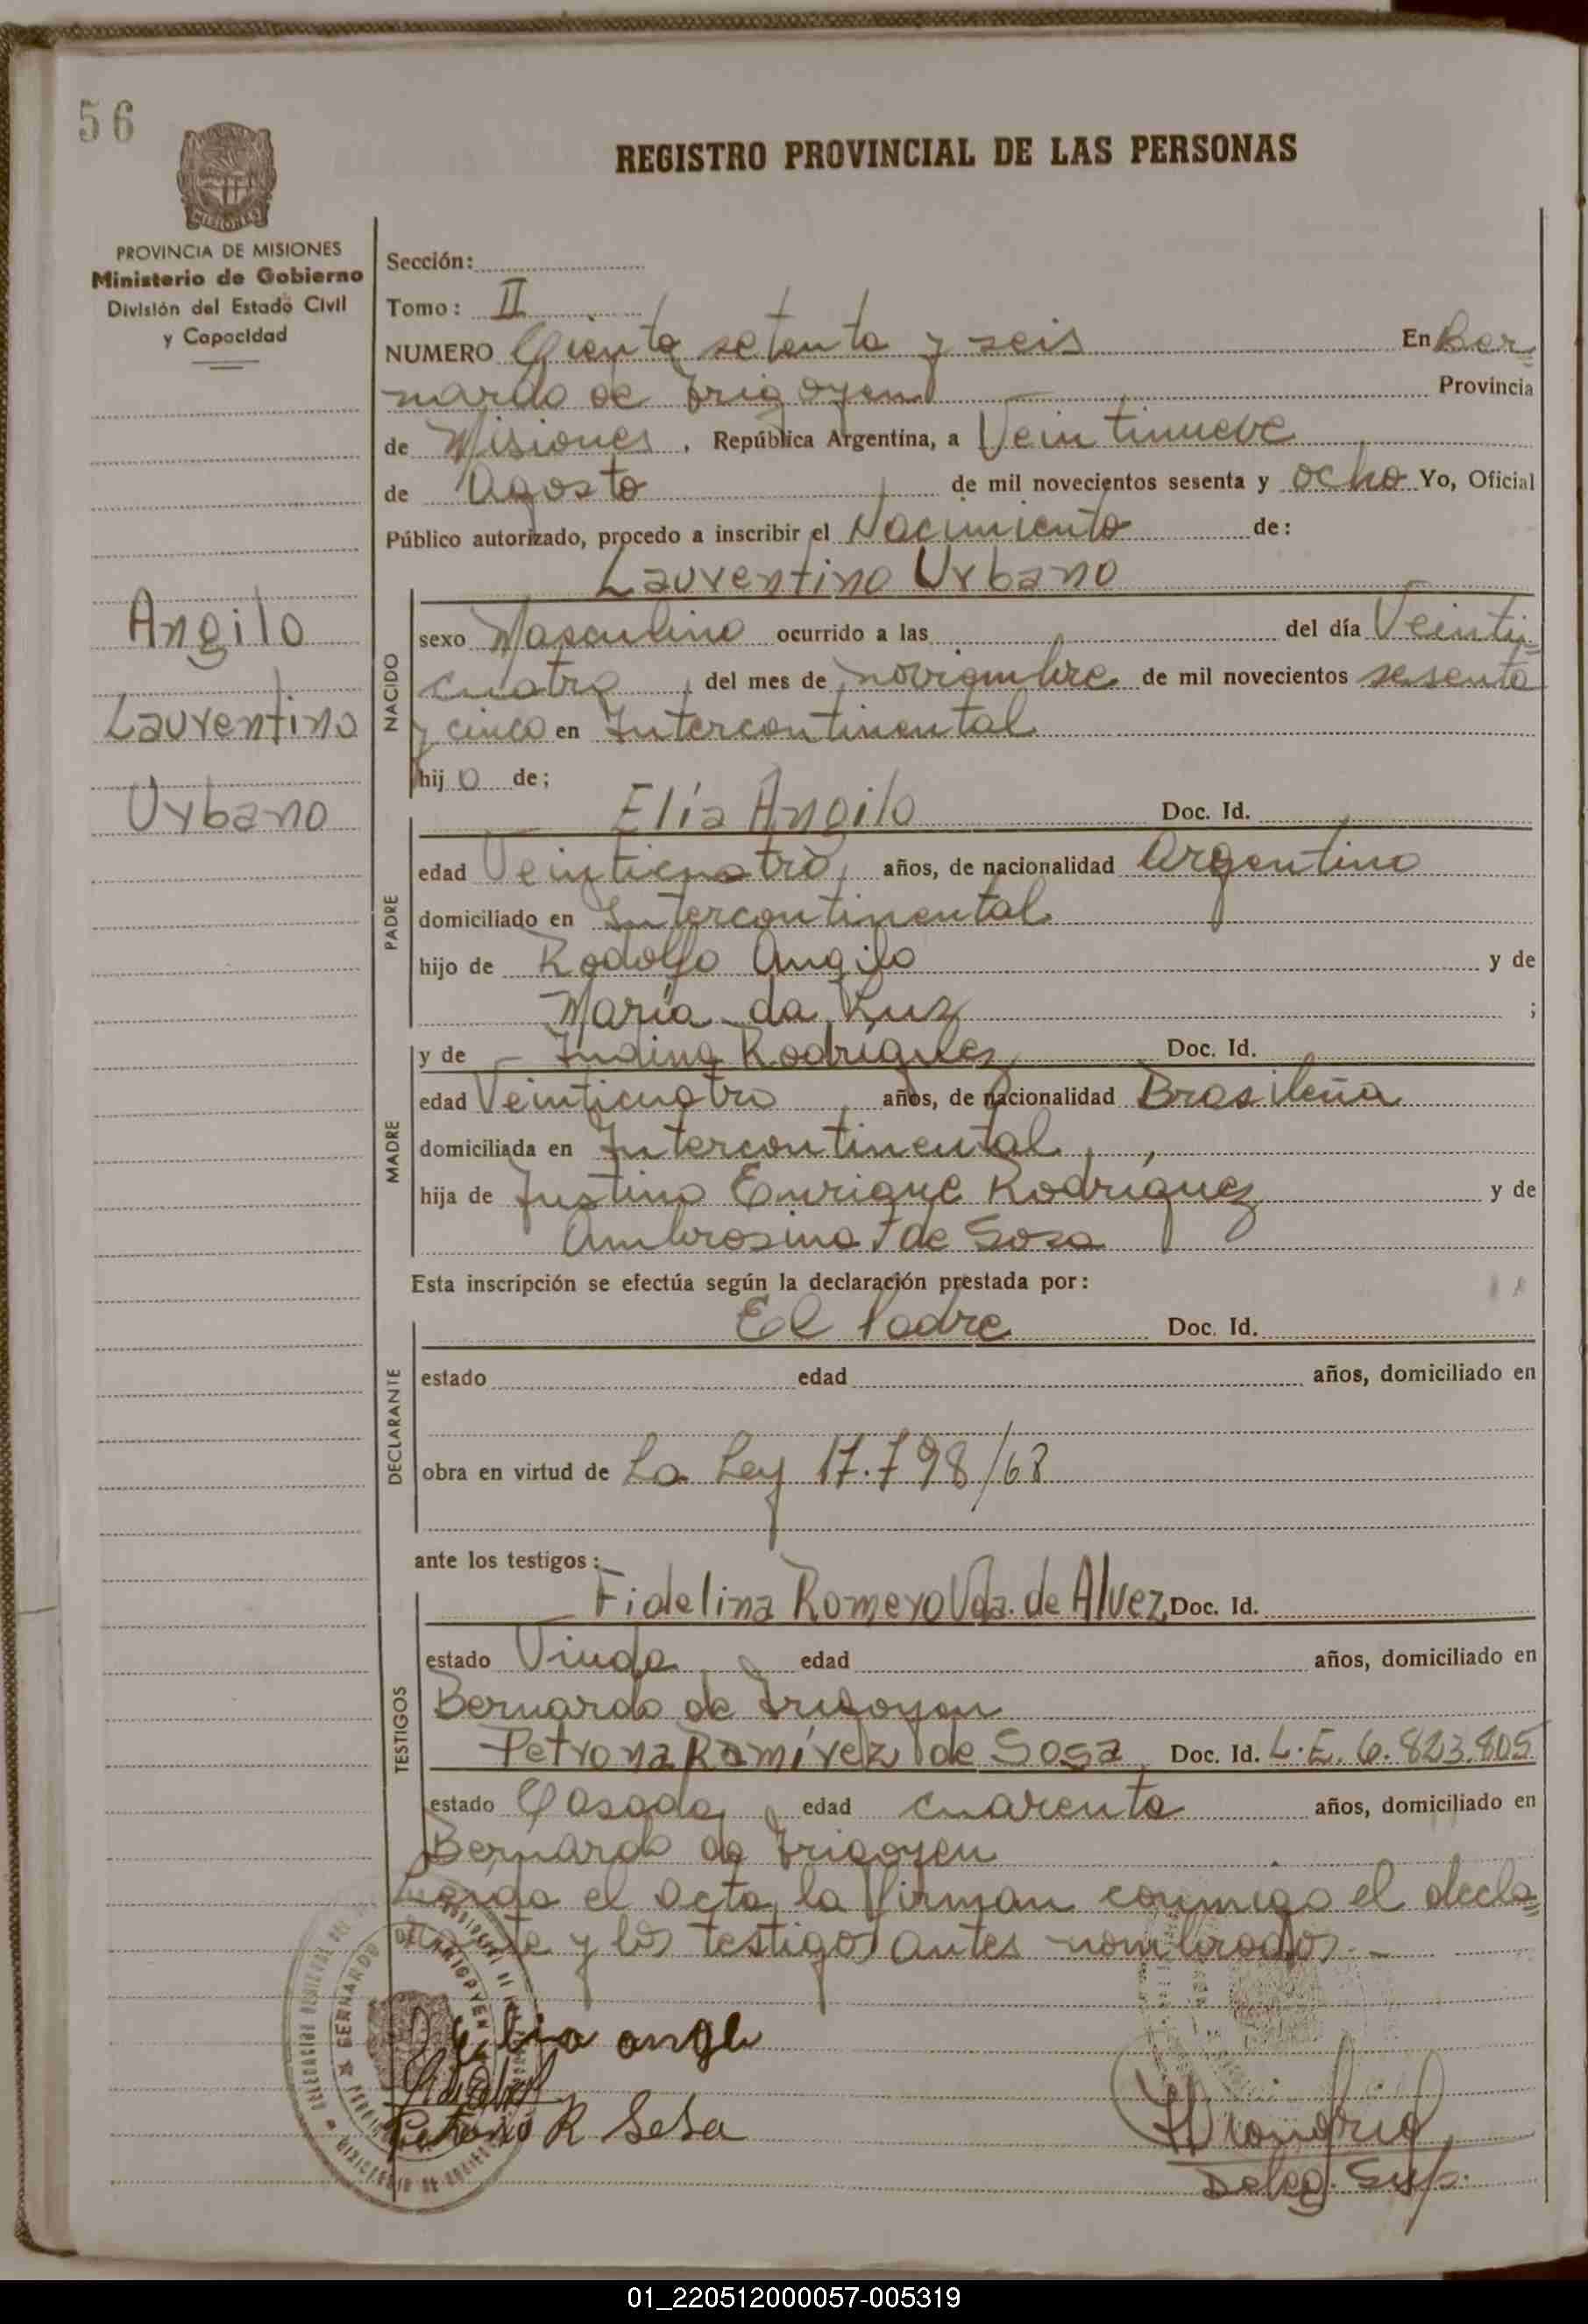 56
REGISTRO PROVINCIAL DE LAS PERSONAS
MISIONES
PROVINCIA DE MISIONES
Ministerio de Gobierno
División del Estado Civil
y Capacidad
Angilo
Lauventino
Urbano
Sección:
Tomo: II
NUMERO Ciento setenta y seis En Ber=
nardo de Irigoyen Provincia
de Misiones, República Argentina, a Veintinueve
de Agosto de mil novecientos sesenta y ocho Yo, Oficial
Público autorizado, procedo a inscribir el Nacimiento de:
Lauventino Urbano
NACIDO
sexo Masculino ocurrido a las del día Veinti=
cuatro del mes de noviembre de mil novecientos sesenta
y cinco en Intercontinental
hij o de;
Elia Angilo Doc. Id.
PADRE
edad Veinticuatro años, de nacionalidad Argentino
domiciliado en Intercontinental
hijo de Rodolfo Angilo y de
María da Luz ;
y de Indina Rodríguez Doc. Id.
MADRE
edad Veinticuatro años, de nacionalidad Brasileña
domiciliada en Intercontinental
hija de Justino Enrique Rodríguez y de
Ambrosina de Sosa
Esta inscripción se efectúa según la declaración prestada por:
El Padre Doc. Id.
DECLARANTE
estado edad años, domiciliado en
obra en virtud de La Ley 17.798/68
ante los testigos:
Fidelina Romero Vda. de Alvez Doc. Id.
TESTIGOS
estado Viuda edad años, domiciliado en
Bernardo de Irigoyen
Petrona Ramírez de Sosa Doc. Id. L.E. 6.823.805
estado Casada edad cuarenta años, domiciliado en
Bernardo de Irigoyen
Leída el acta, la firman conmigo el decla=
rante y los testigos antes nombrados.-
BERNARDO DE IRIGOYEN
Elia angl
Petrona R Sosa
Deleg. Sup.
01_220512000057-005319